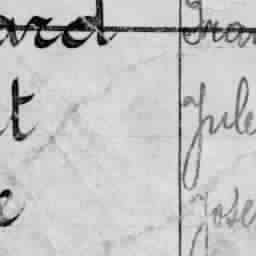 ard Fran
t Jule
e Jose